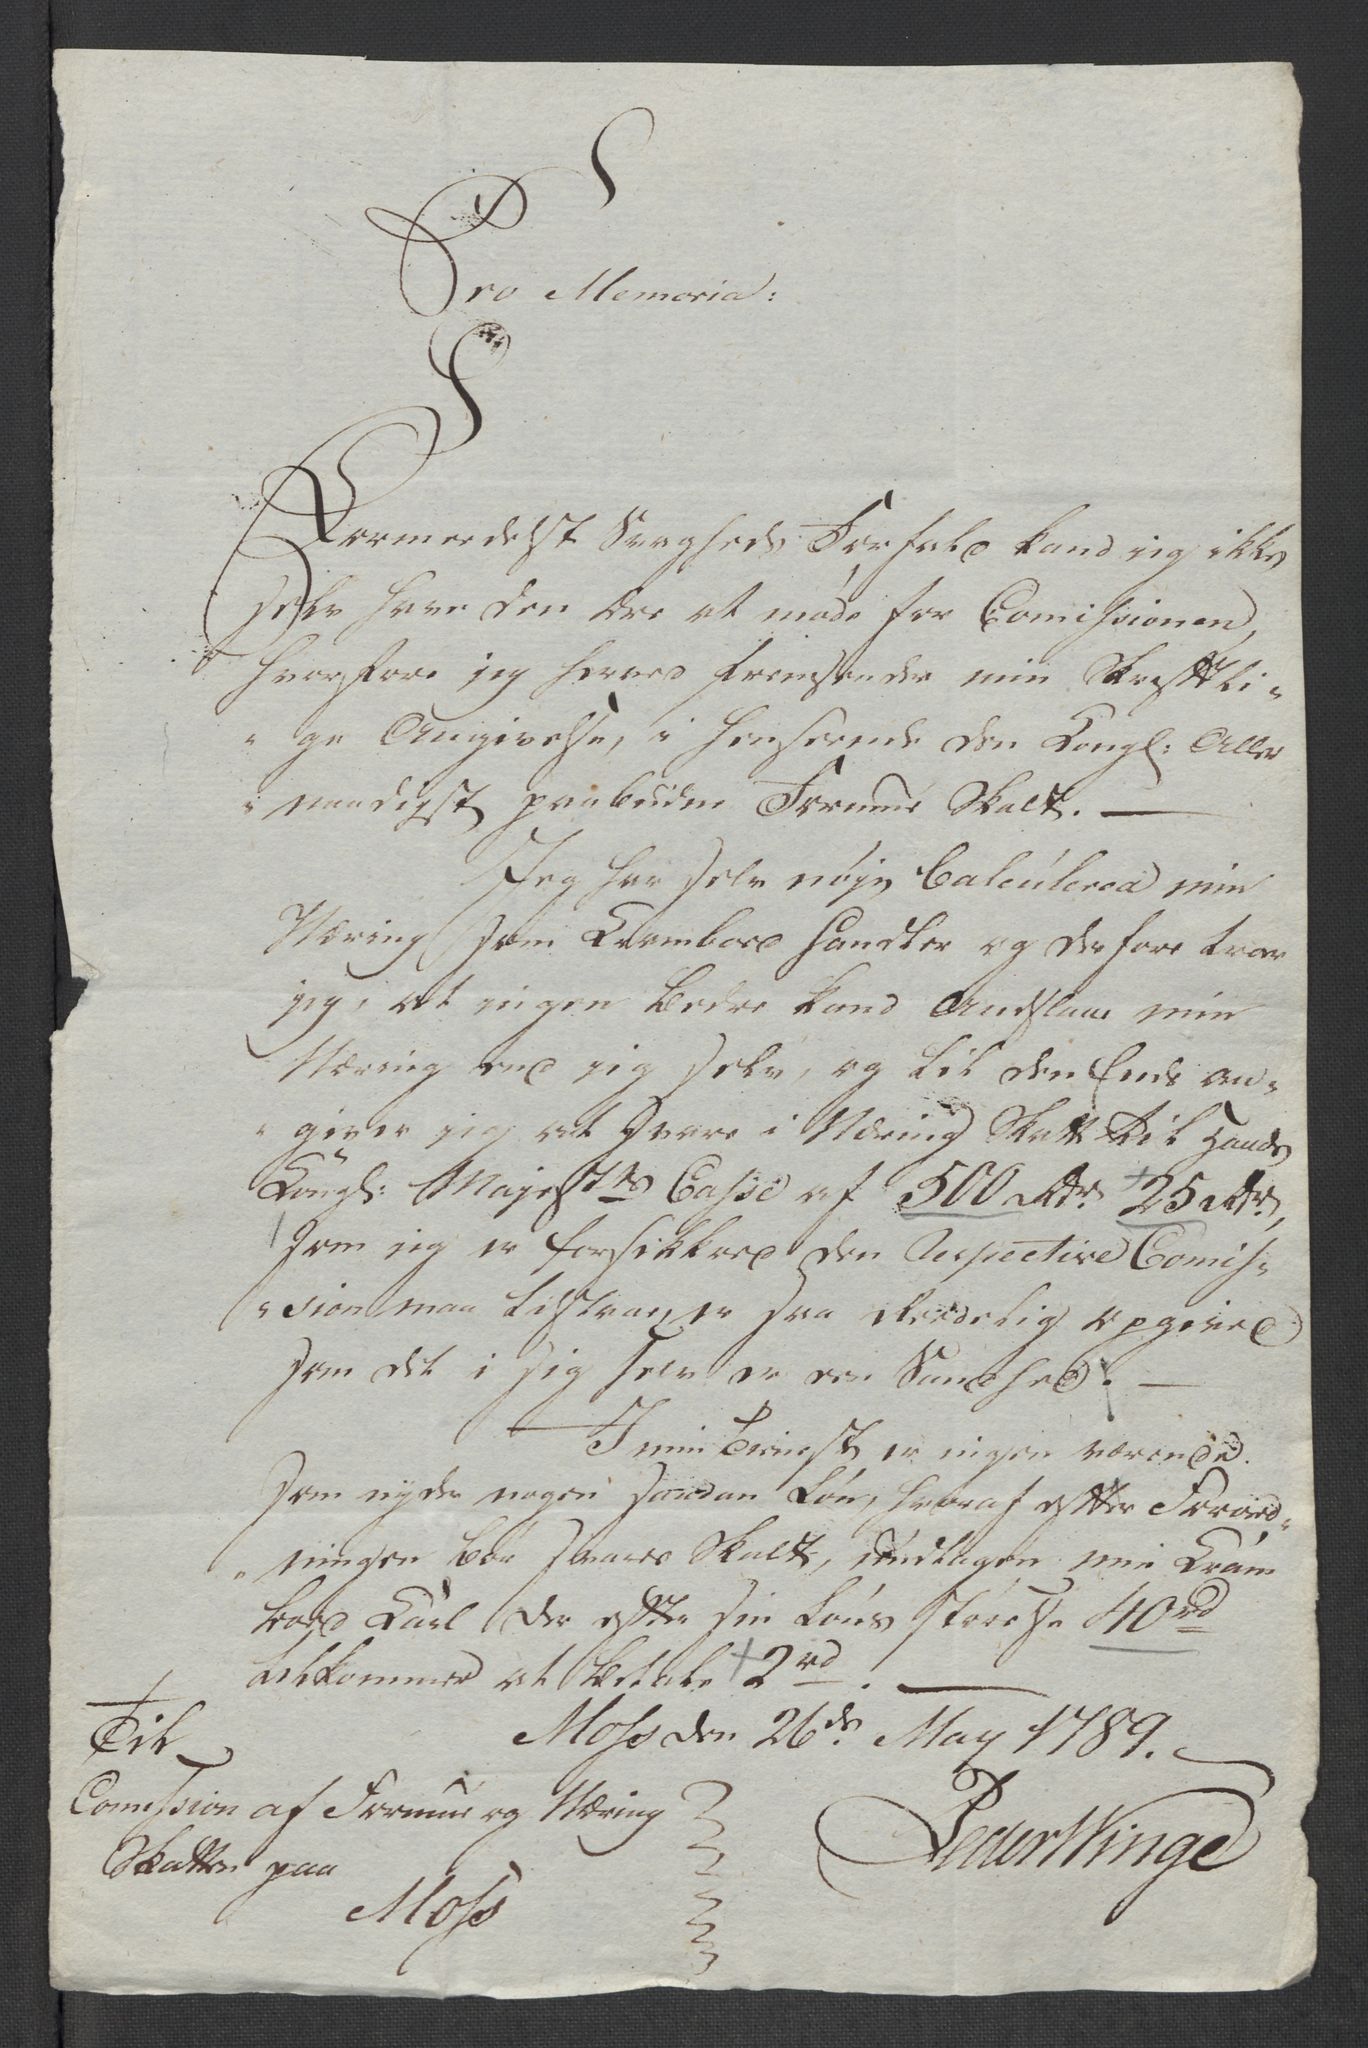 Pro Memoria:
Formedelst Svagheds Forfald kand jeg ikke
selv have den Ære at møde for Comissionen,
hvorfore jeg herved fremsender min Skrifftli-
-ge Angivelse, i henseende den Kongl: Aller
-naadigst paabudne Formue Skatt. —
Jeg har selv nøje Calculered min
Næring som Krambod Handler og derfore troer
jeg, at ingen bedre kand Andslaae min
Næring end jeg selv, og til den Ende an-
-giver jeg at svare i Næring Skatt til Hands
Kongl: Majestts Casse af 500 Rdr. 25 Rdr.,
som jeg er forsikkred den Respective Comis-
-sion maa tilstaae, er saa Reedelig opgived
som det i sig selv er en Sandhed. —
I min Tieneste er ingen værende
som nyder nogen saadan Løn, hvoraf effter Forord-
-ningen bør svares Skatt, undtagen min Kram
bod Karl der effter sin Løns størelse 40 rd
tilkommer at betale 2 rd. —
Moss den 26de May 1789.
Til
Comission af Formue og Næring
Skatten paa
Moss
Peder Winge